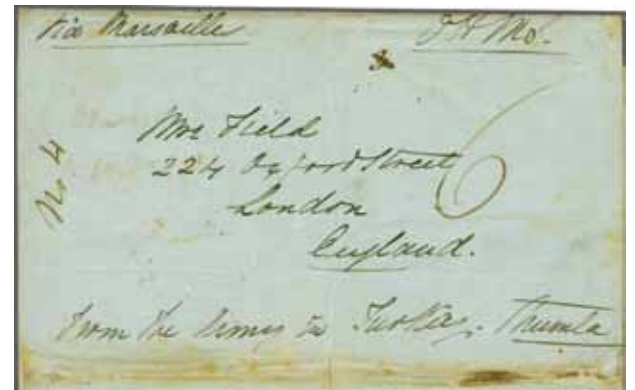 Via Marsailles
6
Mrs Field
224 Oxford Street
London
England.
No 4
From the Army in Turkey. Shumla